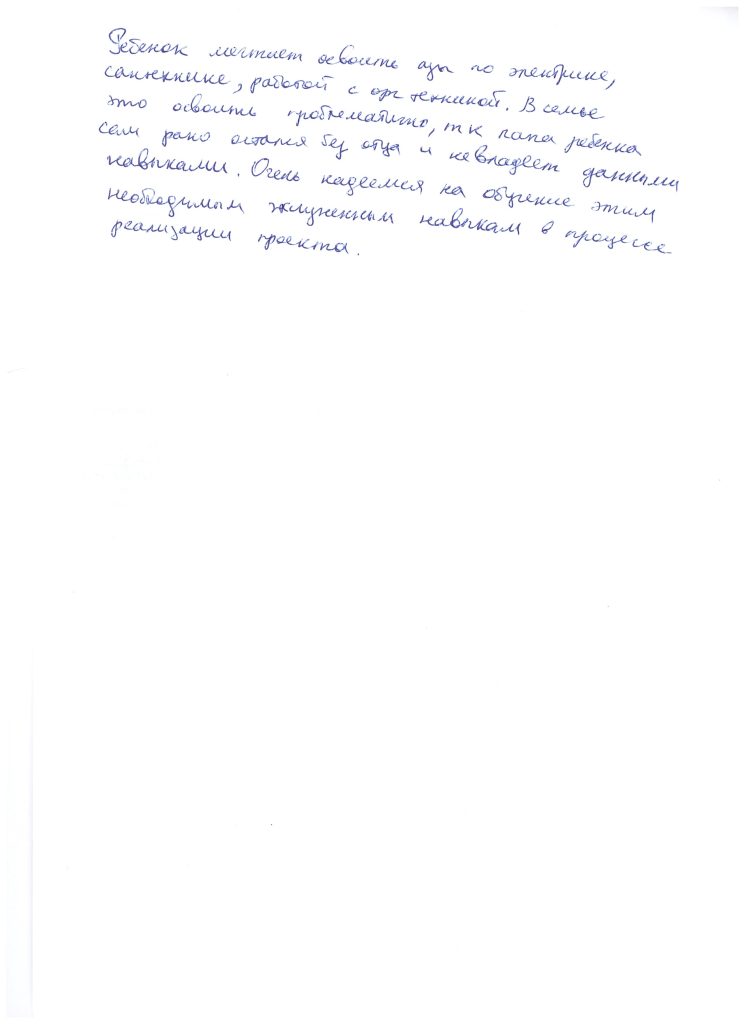 Ребенок мечтает освоить азы по электрике,
сантехнике, работой с орг техникой. В семье
это освоить проблематично, тк папа ребенка
сам рано остался без отца и невладеет данными
навыками. Очень надеемся на обучение этим
необходимым жизненным навыкам в процессе
реализации проекта.